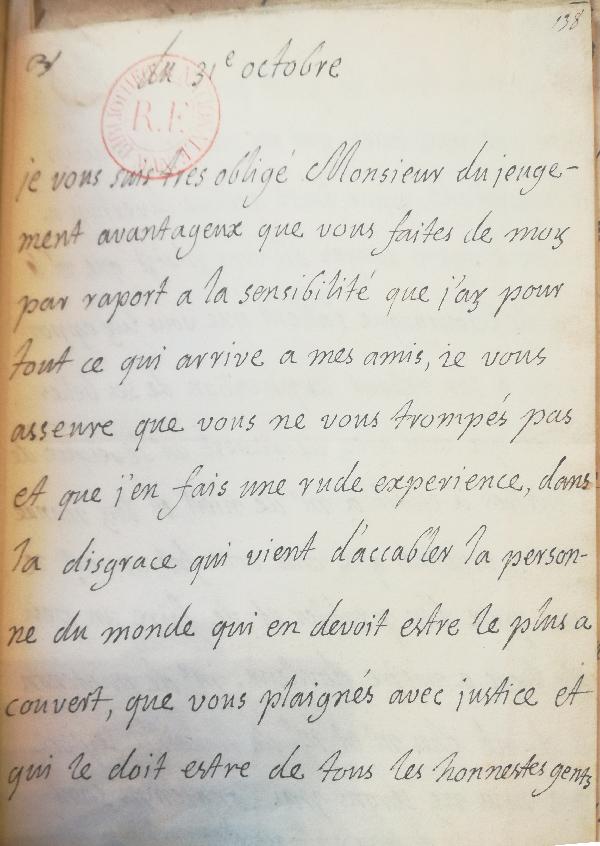 138
du 31e octobre
R.F.
je vous suis tres obligé Monsieur du jeuge-
ment avantageux que vous faites de moy
par raport a la sensibilité que j'ay pour
tout ce qui arrive a mes amis, ie vous
asseure que vous ne vous trompés pas
et que j'en fais une rude experience, dans
la disgrace qui vient d'accabler la person-
ne du monde qui en devoit estre le plus a
couvert, que vous plaignés avec justice et
qui le doit estre de tous les honnestes gents